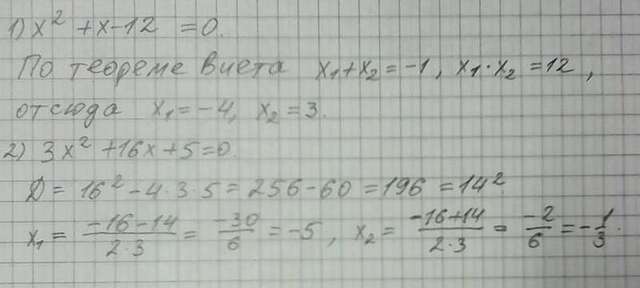 1) x² + x - 12 = 0.
По теореме Виета x₁ + x₂ = -1, x₁ · x₂ = 12,
отсюда x₁ = -4, x₂ = 3.
2) 3x² + 16x + 5 = 0.
D = 16² - 4 · 3 · 5 = 256 - 60 = 196 = 14²
x₁ = (-16-14)/(2·3) = -30/6 = -5, x₂ = (-16+14)/(2·3) = -2/6 = -1/3.